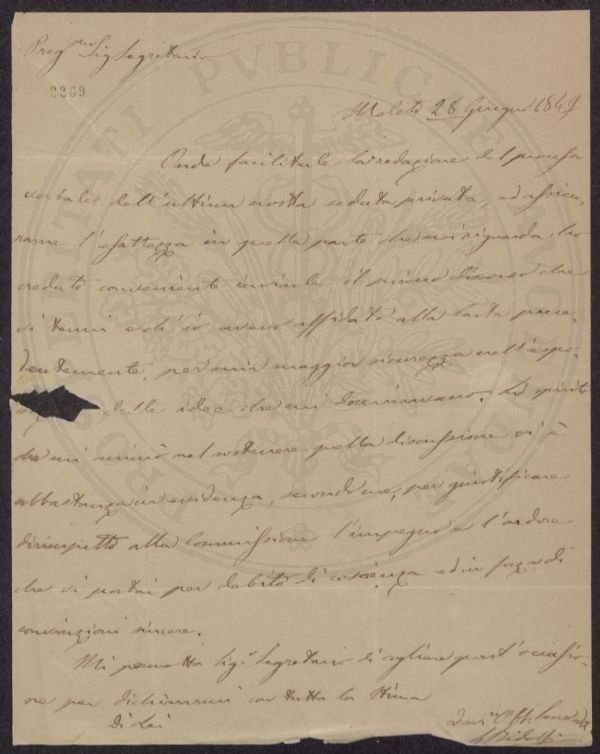 Preg.mo Sig. Segretario
2269
Meleto 28 Giugno 1847
Onde facilitarle la redazione del processo
verbale dell'ultima nostra seduta privata, ed assicu-
rarne l'esattezza in quella parte che mi riguarda ho
creduto conveniente inviarle il primo discorso che
vi tenni e ch'io avevo affidato alla carta prece-
dentemente, per mia maggior sicurezza nell'espo-
delle idee che mi dominavano. Lo spirito
che mi animò nel sostenere quella discussione vi è
abbastanza in evidenza, secondo me, per giustificare
dirimpetto alla Commissione l'impegno e l'ardore
che vi portai per debito di coscienza ed in forza di
convinzioni sincere.
Mi permetta Sig.r Segretario di cogliere quest'occasio-
ne per dichiararmi con tutta la stima
Di Lei
C. Ridolfi
PUBLICAE